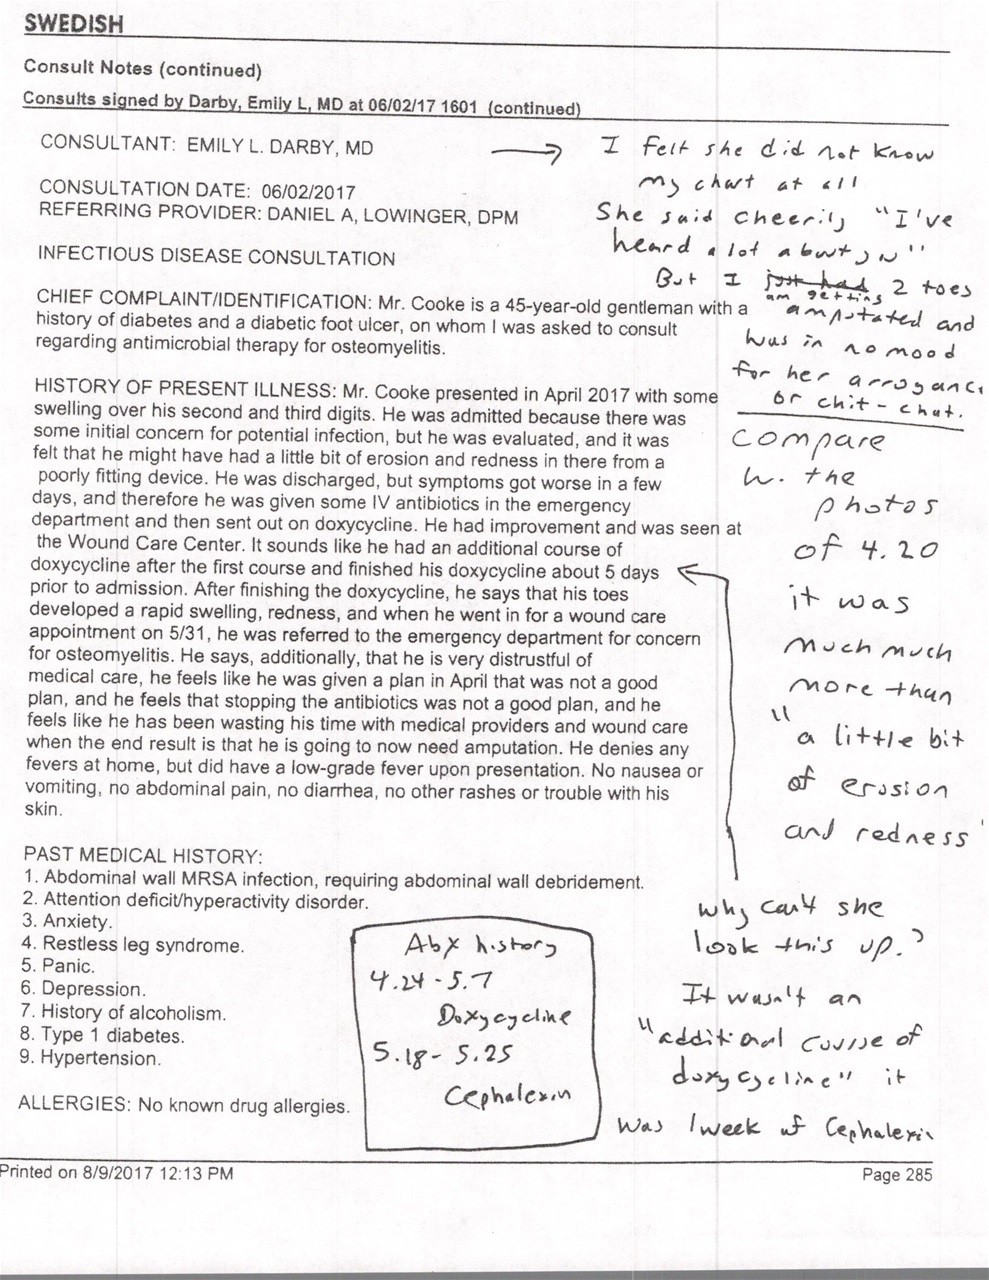 SWEDISH
Consult Notes (continued)
Consults signed by Darby, Emily L, MD at 06/02/17 1601 (continued)
CONSULTANT: EMILY L. DARBY, MD
CONSULTATION DATE: 06/02/2017
REFERRING PROVIDER: DANIEL A, LOWINGER, DPM
INFECTIOUS DISEASE CONSULTATION
CHIEF COMPLAINT/IDENTIFICATION: Mr. Cooke is a 45-year-old gentleman with a
history of diabetes and a diabetic foot ulcer, on whom I was asked to consult
regarding antimicrobial therapy for osteomyelitis.
HISTORY OF PRESENT ILLNESS: Mr. Cooke presented in April 2017 with some
swelling over his second and third digits. He was admitted because there was
some initial concern for potential infection, but he was evaluated, and it was
felt that he might have had a little bit of erosion and redness in there from a
poorly fitting device. He was discharged, but symptoms got worse in a few
days, and therefore he was given some IV antibiotics in the emergency
department and then sent out on doxycycline. He had improvement and was seen at
the Wound Care Center. It sounds like he had an additional course of
doxycycline after the first course and finished his doxycycline about 5 days
prior to admission. After finishing the doxycycline, he says that his toes
developed a rapid swelling, redness, and when he went in for a wound care
appointment on 5/31, he was referred to the emergency department for concern
for osteomyelitis. He says, additionally, that he is very distrustful of
medical care, he feels like he was given a plan in April that was not a good
plan, and he feels that stopping the antibiotics was not a good plan, and he
feels like he has been wasting his time with medical providers and wound care
when the end result is that he is going to now need amputation. He denies any
fevers at home, but did have a low-grade fever upon presentation. No nausea or
vomiting, no abdominal pain, no diarrhea, no other rashes or trouble with his
skin.
PAST MEDICAL HISTORY:
1. Abdominal wall MRSA infection, requiring abdominal wall debridement.
2. Attention deficit/hyperactivity disorder.
3. Anxiety.
4. Restless leg syndrome.
5. Panic.
6. Depression.
7. History of alcoholism.
8. Type 1 diabetes.
9. Hypertension.
ALLERGIES: No known drug allergies.
I felt she did not know
my chart at all
She said cheerily "I've
heard a lot about you"
But I just had 2 toes
am getting
amputated and
was in no mood
for her arroganc
or chit-chat.
compare
w. the
photos
of 4.20
it was
much much
more than
"a little bit
of erosion
and redness'
why can't she
look this up?
It wasn't an
"additional course of
doxycycline" it
was 1 week of Cephalexin
Abx history
4.24 - 5.7
Doxycycline
5.18 - 5.25
Cephalexin
Printed on 8/9/2017 12:13 PM
Page 285